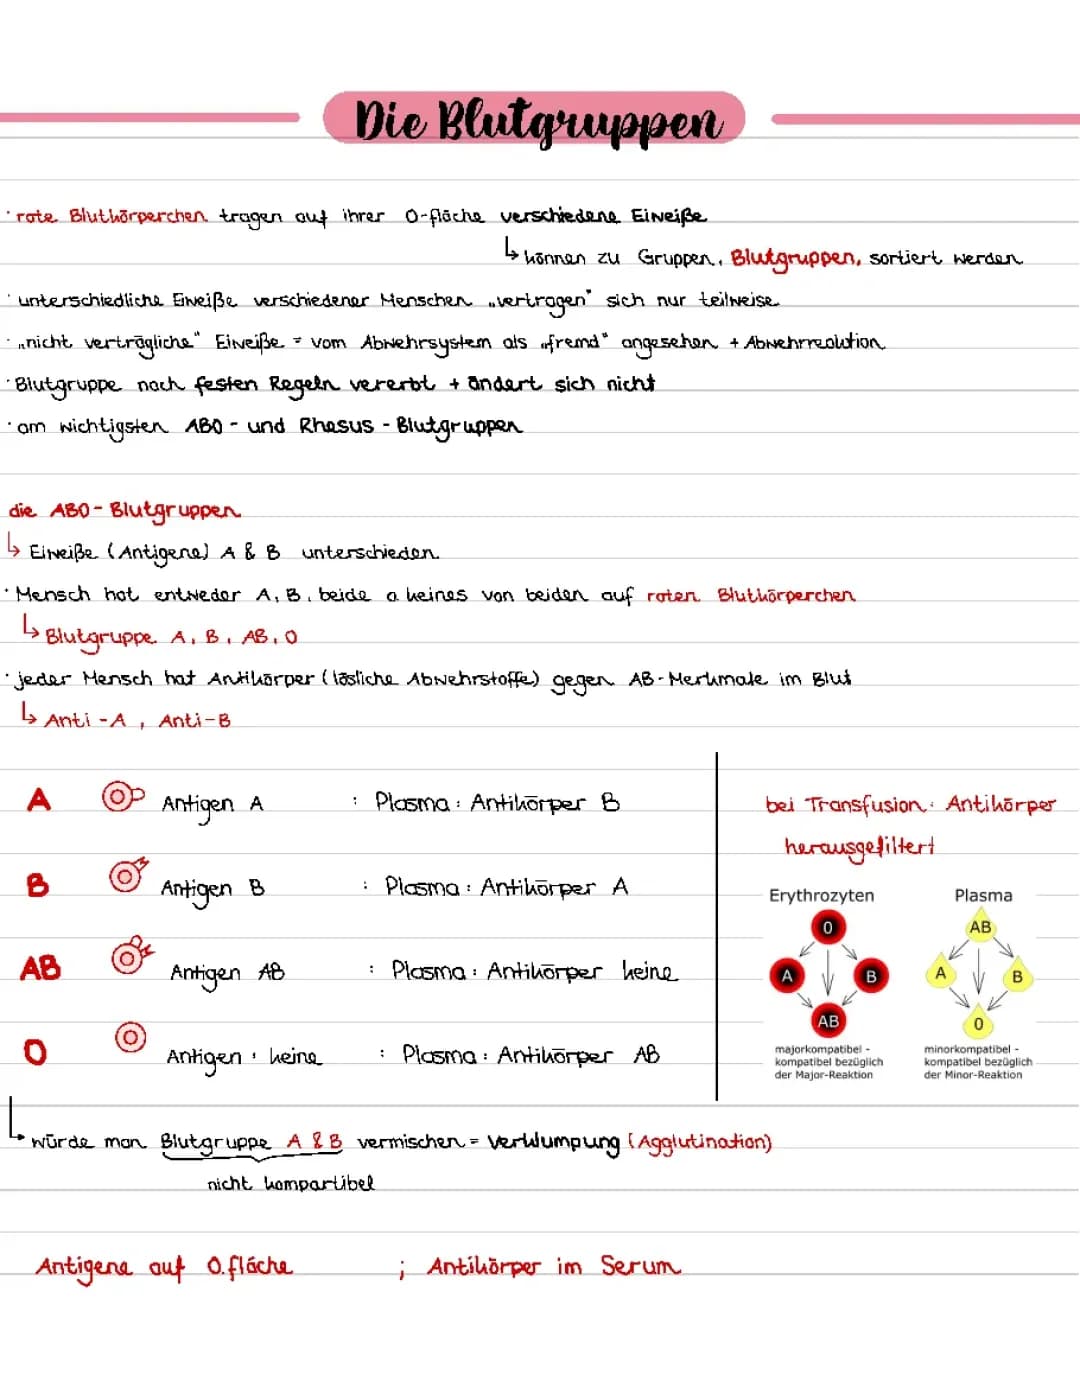 Die Blutgruppen
· rote Blutkörperchen tragen auf ihrer O-fläche verschiedene Eiweiße
↳ können zu Gruppen, Blutgruppen, sortiert werden
· unterschiedliche Eiweiße verschiedener Menschen „vertragen" sich nur teilweise
· „nicht verträgliche" Eiweiße = vom Abwehrsystem als „fremd" angesehen + Abwehrreaktion
· Blutgruppe nach festen Regeln vererbt + ändert sich nicht
· am wichtigsten AB0 - und Rhesus - Blutgruppen
die AB0 - Blutgruppen
↳ Eiweiße (Antigene) A & B unterschieden
· Mensch hat entweder A, B, beide o keines von beiden auf roten Blutkörperchen
↳ Blutgruppe A, B, AB, 0
· jeder Mensch hat Antikörper (lösliche Abwehrstoffe) gegen AB-Merkmale im Blut
↳ Anti -A , Anti-B
A Antigen A : Plasma: Antikörper B
B Antigen B : Plasma: Antikörper A
AB Antigen AB : Plasma: Antikörper keine
0 Antigen : keine : Plasma: Antikörper AB
bei Transfusion: Antikörper
herausgefiltert
Erythrozyten
0
A B
AB
majorkompatibel -
kompatibel bezüglich
der Major-Reaktion
Plasma
AB
A B
0
minorkompatibel -
kompatibel bezüglich
der Minor-Reaktion
↳ würde man Blutgruppe A & B vermischen = Verklumpung (Agglutination)
nicht kompartibel
Antigene auf O.fläche ; Antikörper im Serum